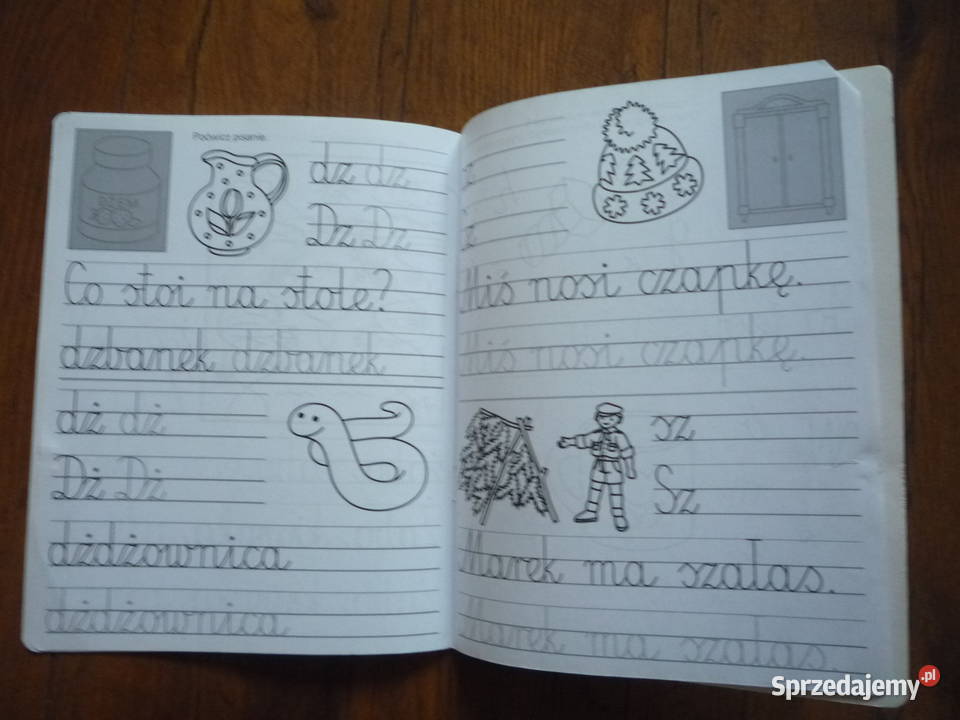 Poćwicz pisanie.
DŻEM
dz dz
Dz Dz
Co stoi na stole?
dzbanek dzbanek
dż dż
Dż Dż
dżdżownica
dżdżownica
z
z
Miś nosi czapkę.
Miś nosi czapkę.
sz
Sz
Marek ma szałas.
Marek ma szałas.
Sprzedajemy.pl